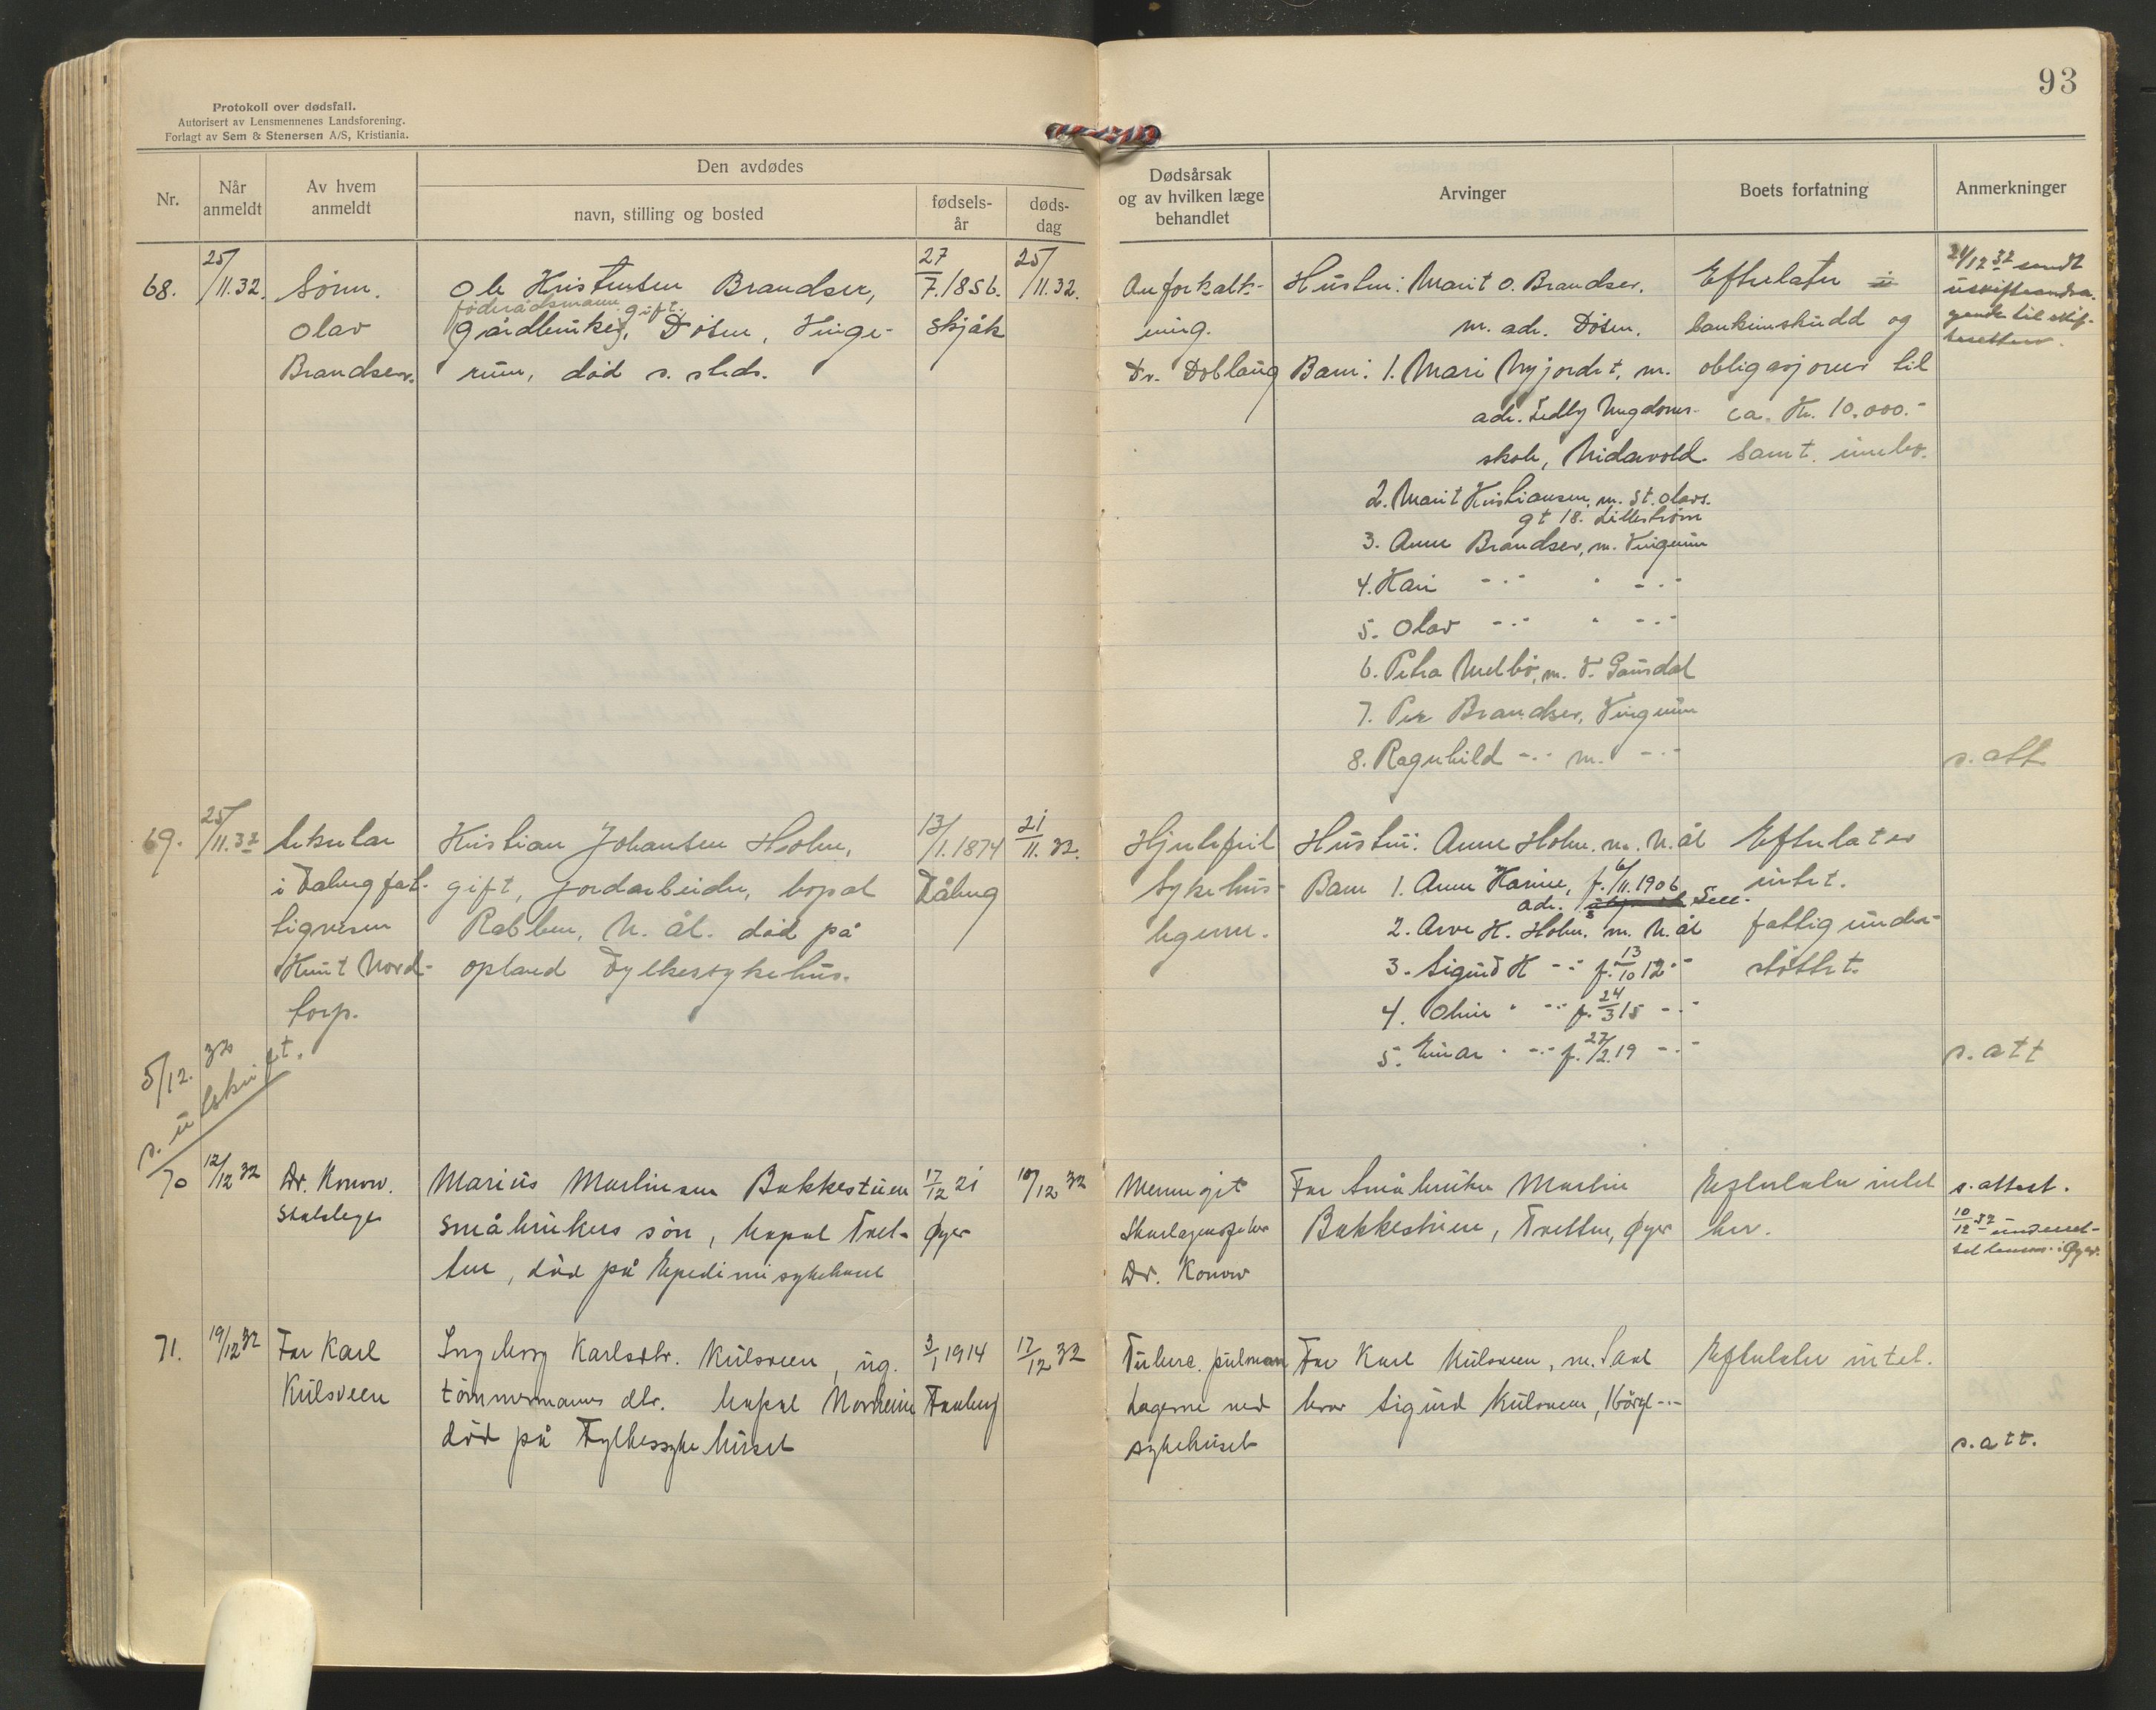 93
Protokoll over dødsfall.
Autorisert av Lensmennenes Landsforening.
Forlagt av Sem & Stenersen A/S, Kristiania.
Nr.
Når anmeldt
Av hvem anmeldt
Den avdødes
navn, stilling og bosted
fødselsår
dødsdag
Dødsårsak og av hvilken læge behandlet
Arvinger
Boets forfatning
Anmerkninger
68.
25/11.32.
Sønn.
Olav
Brandser.
Ole Kristensen Brandser,
føderådsmann gift.
(gårdbruker), Døsen, Vinge-
rum, død s. steds.
27/7.1856.
Skjåk
25/11.32.
Åreforkalk-
ning.
Dr. Doblaug
Hustru: Marit O. Brandser.
m. adr. Døsen.
Barn: 1. Mari Nyjordet, m.
adr. Ungdoms-
skole,
2. Marit Kristiansen, m. St. Olavs.
gt 18. Lillestrøm
3. Anne Brandser, m. Vingrum
4. Kari -"- " -"-
5. Olav -"- " -"-
6. Petra Melbø, m. V. Gausdal
7. Per Brandser, Vingrum
8. Ragnhild -"- m. -"-
Efterlater i
bankinskudd og
obligasjoner til
ca. Kr. 10.000.-
samt innbo.
21/12 32 sendt
uskifteandra-
gende til skif-
teretten.
s. att.
69.
25/11.32
Sekretær
i Faberg fat-
tigvesen
Knut Nord-
torp.
Kristian Johansen Holm,
gift, jordarbeider, bopæl
Rabben, N. Ål. død på
Opland Fylkessykehus.
13/1.1874
Fåberg
21/11.32.
Hjertefeil
Sykehus-
legene.
Hustru: Anne Holm. m. N. Ål
Barn 1. Anne Karine, f. 6/11.1906
adr.
2. Arve K. Holm. m. N. Ål
3. Sigurd K -"- f. 13/10 12 -"-
4. " -"- f. 24/3 15 -"-
5. Einar " -"- f. 27/2.19 -"-
Efterlater
intet.
fattigunder-
støttet.
s. att
5/12. 32
s. utskrift.
70
12/12 32
Dr. Konow.
Stadslege
Marius Martinsen Bakkestuen
småbrukers søn, bopæl Tret-
ten, død på Epedimisykehuset
17/12 21
Øyer
10/12 32
Meningit
Skarlagensfeber
Dr. Konow
Far Småbruker Martin
Bakkestuen, Tretten, Øyer
Efterlater intet
her.
s. attest.
10/12 32 underret-
tet lensm. i Øyer.
71.
19/12 32
Far Karl
Kulsveen
Ingeborg Karlsdtr. Kulsveen, ug.
tømmermanns dtr. bopæl Nordseim
død på Fylkessykehuset
3/1 1914
Faaberg
17/12 32
Tuberc. pulmon
Lægerne ved
sykehuset
Far Karl Kulsveen, m.
bror Sigurd Kulsveen, 16 årgl -"-
Efterlater intet.
s. att.